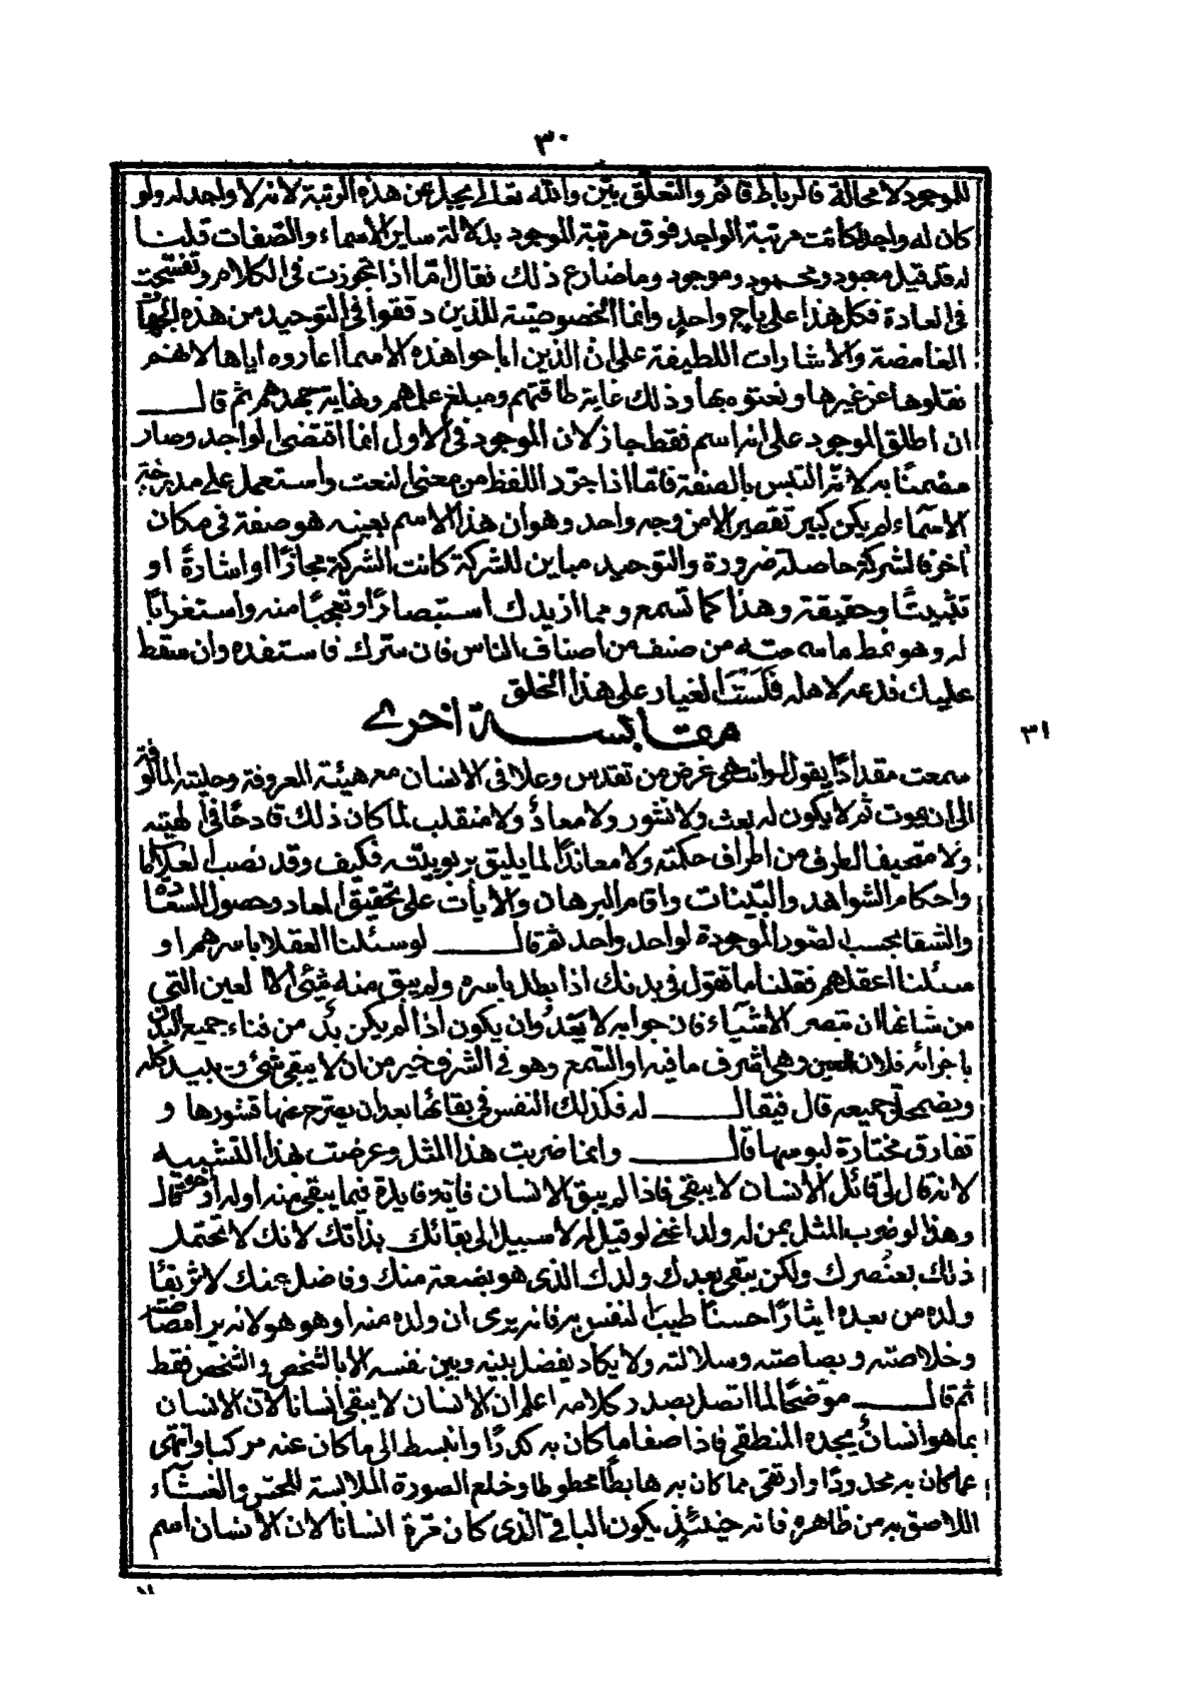 ٣٠
للموجود لا محالة فالرباط قائم والتعلق بيّن والله تعالى يجل عن هذه الرتبة لانه لا واجد له ولو
كان له واجد لكانت مرتبة الواجد فوق مرتبة الموجود بدلالة ساير الاسماء والصفات قلنا
له قد قيل معبود ومحمود وموجود وما ضارع ذلك فقال امّا اذا تجوزت في الكلام وتفسّحت
في العادة فكل هذا على باج واحد وانما الخصوصيّة للذين دققوا في التوحيد من هذه الجهات
الغامضة والاشارات اللطيفة على ان الذين اباحوا هذه الاسما اعاروه اياها لانهم
نقلوها عن غيرها ونعتوه بها وذلك غاية طاقتهم ومبلغ علمهم ونهاية جهدهم ثم قال
ان اطلق الموجود على انه اسم فقط جاز لان الموجود في الاول انما اقتضى الواجد وصار
مضمنًا به لانّه التبس بالصفة فامّا اذا جرّد اللفظ من معنى النعت واستعمل على مدرجة
الاسماء لم يكن كبير تقصير الا من وجه واحد وهو ان هذا الاسم بعينه هو صفة في مكان
اخر فالشركة حاصلة ضرورة والتوحيد مباين للشركة كانت الشركة مجازًا او اشارةً او
تثبيتًا وحقيقة وهذا كما تسمع ومما ازيدك استبصارًا وتعجبًا منه واستغرابًا
له وهو نمط ما سمعته من صنف من اصناف الناس فان سرّك فاستفده وان سقط
عليك فدعه لاهله فَلَسْتَ الغيار على هذا الخلق
مقابسة اخرى
٣١
سمعت مقدادًا يقول لو انطوى غرض من تقدس وعلا في الانسان مع هيئته المعروفة وحليته المالوفة
الى ان يموت ثم لا يكون له بعث ولا نشور ولا معاد ولا منقلب لما كان ذلك قادحًا في الهيته
ولا متحيفا لطرف من اطراف حكمته ولا معاندًا لما يليق بربوبيته فكيف وقد نصب العلامات
واحكام الشواهد والبيّنات واقام البرهان والايات على تحقيق المعاد وحصول السعادة
والشقا بحسب الصور الموجودة لواحد واحد ثم قال لو سئلنا العقلا باسرهم او
سئلنا اعقلهم فقلنا ما تقول في بدنك اذا بطل باسره ولم يبق منه شئ الا العين التي
من شانها ان تبصر الاشياء فان جوابه لا يَعْدُو ان يكون اذا لم يكن بدّ من فناء جميع البدن
باجزائه فلان العين وهي اشرف ما فيه او السّمع وهو في الشرف خير من ان لا يبقى شئ ويبيد كله
ويضمحل جميعه قال فيقال له فكذلك النفس في بقائها بعد ان يعترج عنها قشورها و
تفارق مختارة لبوسها قال وانما ضربت هذا المثل وعرضت بهذا التشبيه
لانه قال لي قائل الانسان لا يبقى فاذا لم يبق الانسان فاية فايدة فيما يبقى منه او له او هو قال
وهذا لو ضرب المثل بمن له ولد اعني لو قيل له لا سبيل الى بقائك بذاتك لانك لا تحتمل
ذلك بعنصرك ولكن يبقى بعدك ولدك الذي هو بضعة منك وفاضل عنك لاثر بقاء
ولده من بعده ايثارًا حسنًا طيبًا لنفس به فانه يرى ان ولده منه او هو هو لانه يراه مضاضته
وخلاصته وبصاصته وسلالته ولا يكاد يفضل بينه وبين نفسه الا بالشخص والشخص فقط
ثم قال موضحًا لما اتصل بصدر كلامه اعلم ان الانسان لا يبقى انسانا لان الانسان
بما هو انسان يحده المنطقى فاذا صفا ما كان به كدرًا وانبسط الى ما كان عنه مركبا وانتهى
عما كان به محدودًا وارتقى مما كان به هابطًا محطوطا وخلع الصورة الملابسة للحسّ والغشاء
اللاصق به من ظاهره فانه حينئذٍ يكون الباقي الذي كان مرّة انسانا لان الانسان اسم